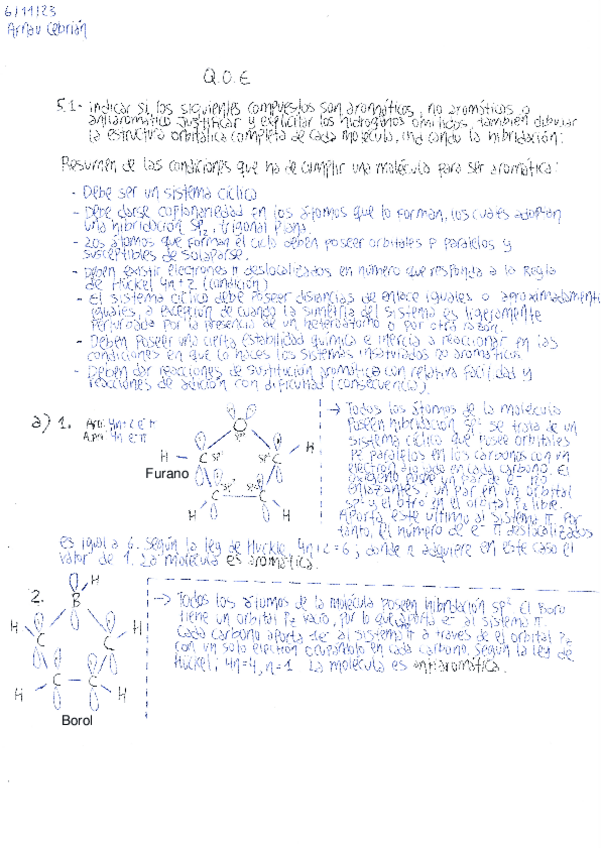 6/11/23
Arnau Cebrián
Q.O.E
5.1- Indicar si los siguientes compuestos son aromáticos, no aromáticos o
antiaromático. Justificar y explicitar los hidrógenos omitidos, también dibujar
la estructura orbitálica completa de cada molécula, indicando la hibridación:
Resumen de las condiciones que ha de cumplir una molécula para ser aromática:
- Debe ser un sistema cíclico
- Debe darse coplanaridad en los átomos que lo forman, los cuales adoptan
una hibridación sp2, trigonal plana.
- Los átomos que forman el ciclo deben poseer orbitales p paralelos y
susceptibles de solaparse.
- Deben existir electrones π deslocalizados en número que responda a la Regla
de Hückel 4n+2. (condición)
- El sistema cíclico debe poseer distancias de enlace iguales o aproximadamente
iguales, a excepción de cuando la simetría del sistema es ligeramente
perturbada por la presencia de un heteroátomo o por otra razón.
- Deben poseer una cierta estabilidad química e inercia a reaccionar en las
condiciones en que lo haces los sistemas insaturados no aromáticos
- Deben dar reacciones de sustitución aromática con relativa facilidad y
reacciones de adición con dificultad (consecuencia).
a) 1.
4n+2 e- π
4n e- π
O
H C C H
sp2 sp2
C C
H H
Furano
→ Todos los átomos de la molécula
poseen hibridación sp2. Se trata de un
sistema cíclico que posee orbitales
Pz paralelos en los carbonos con un
electrón en cada carbono. El
oxígeno posee un par de e- no
enlazantes, un par en un orbital
sp2 y el otro en el orbital Pz libre.
Aporta este último al sistema π. Por
tanto, el número de e- π deslocalizados
es igual a 6. Según la ley de Huckle, 4n+2=6; donde n adquiere en este caso el
valor de 1. La molécula es aromática.
2.
H
B
H C C H
C C
H H
Borol
→ Todos los átomos de la molécula poseen hibridación sp2. El Boro
tiene un orbital Pz vacío, por lo que e- al sistema π.
Cada carbono aporta 1e- al sistema π a través de el orbital Pz
con un solo electrón ocupándolo en cada carbono. Según la ley de
Hückel; 4n=4, n=1 La molécula es antiaromática.